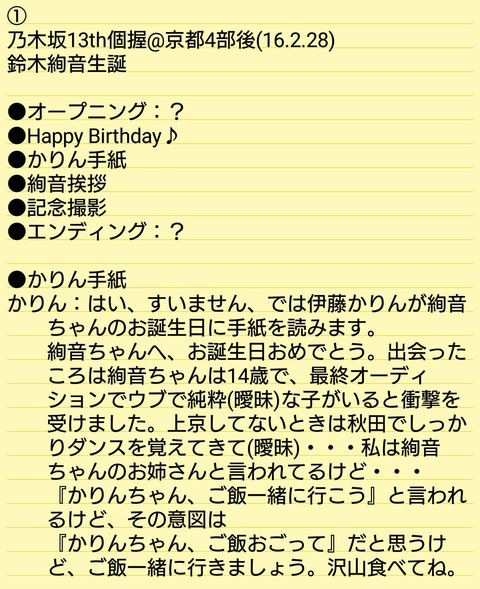 ①
乃木坂13th個握@京都4部後(16.2.28)
鈴木絢音生誕
●オープニング：？
●Happy Birthday♪
●かりん手紙
●絢音挨拶
●記念撮影
●エンディング：？
●かりん手紙
かりん：はい、すいません、では伊藤かりんが絢音
ちゃんのお誕生日に手紙を読みます。
絢音ちゃんへ、お誕生日おめでとう。出会った
ころは絢音ちゃんは14歳で、最終オーディ
ションでウブで純粋(曖昧)な子がいると衝撃を
受けました。上京してないときは秋田でしっか
りダンスを覚えてきて(曖昧)・・・私は絢音
ちゃんのお姉さんと言われてるけど・・・
『かりんちゃん、ご飯一緒に行こう』と言われ
るけど、その意図は
『かりんちゃん、ご飯おごって』だと思うけ
ど、ご飯一緒に行きましょう。沢山食べてね。